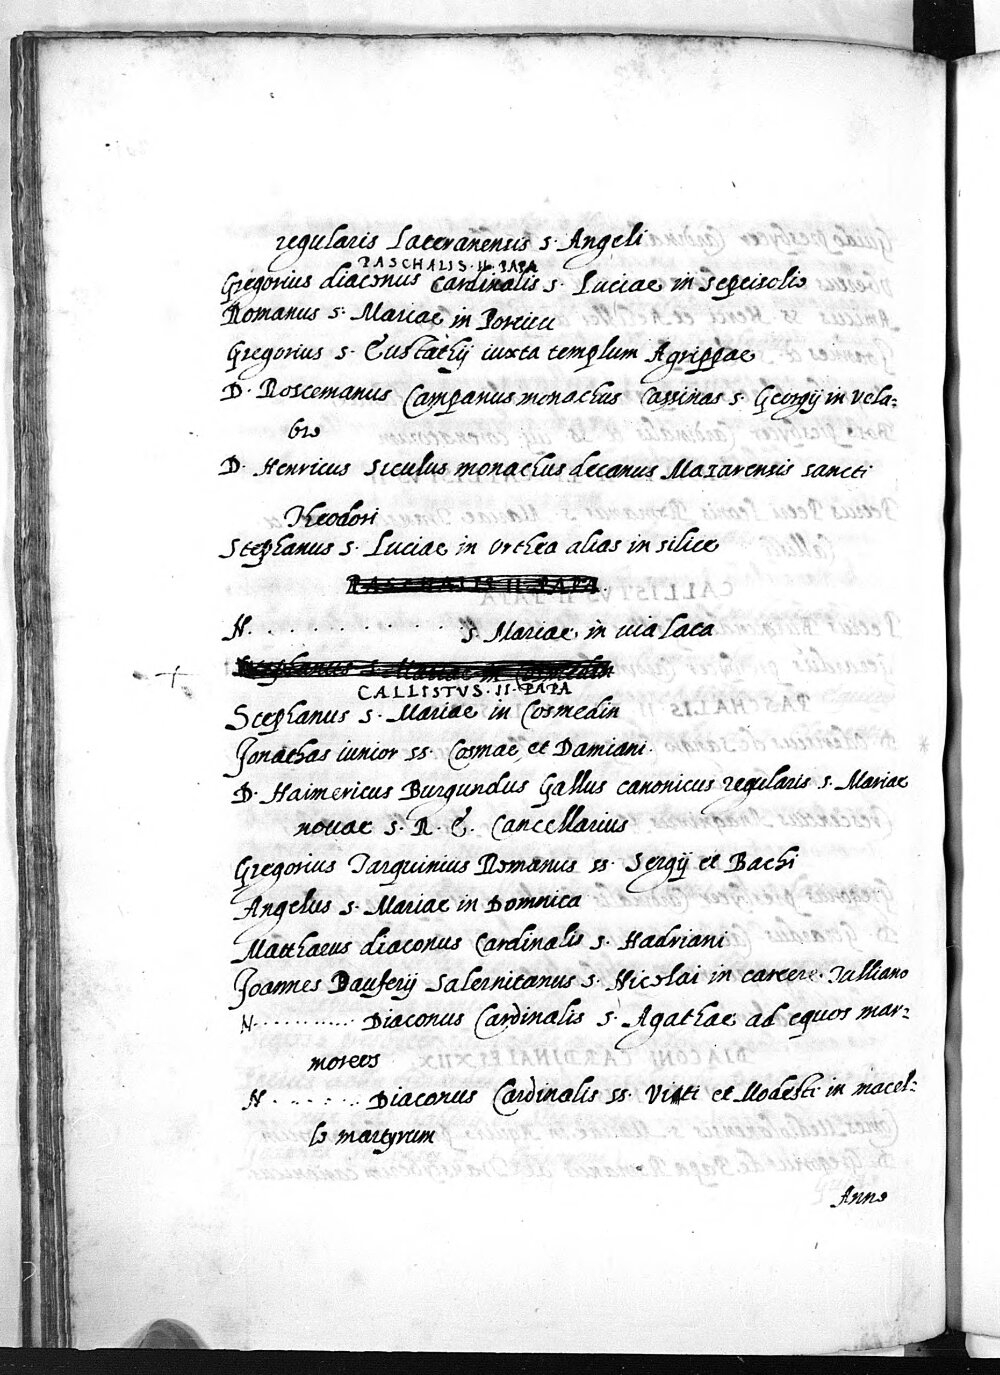 regularis Lateranensis s. Angeli
PASCHALIS. II. PAPA
Gregorius diaconus Cardinalis s. Luciae in septisolio
Romanus s. Mariae in Porticu
Gregorius s. Eustathij iuxta templum Agrippae
D. Roscemanus Campanus monachus Cassinas s. Georgij in Vela=
bro
D. Henricus Siculus monachus decanus Mazarensis sancti
Theodori
Stephanus s. Luciae in Orthea alias in silice
PASCHALIS II PAPA.
N. . . . . . . . . . . s. Mariae in via lata
Stephanus s. Mariae in Cosmedin
CALLISTVS. II. PAPA
Stephanus s. Mariae in Cosmedin
Jonathas iunior ss. Cosmae et Damiani.
D. Haimericus Burgundus Gallus canonicus regularis s. Mariae
novae s. R. E. Cancellarius
Gregorius Tarquinius Romanus ss. Sergij et Bachi
Angelus s. Mariae in Domnica
Matthaeus diaconus Cardinalis s. Hadriani
Joannes Dauferij Salernitanus s. Nicolai in carcere Tulliano
N. . . . . . . . . . . Diaconus Cardinalis s. Agathae ad equos mar=
moreos
N. . . . . . . . Diaconus Cardinalis ss. Viti et Modesti in macel=
lo martyrum
Anno